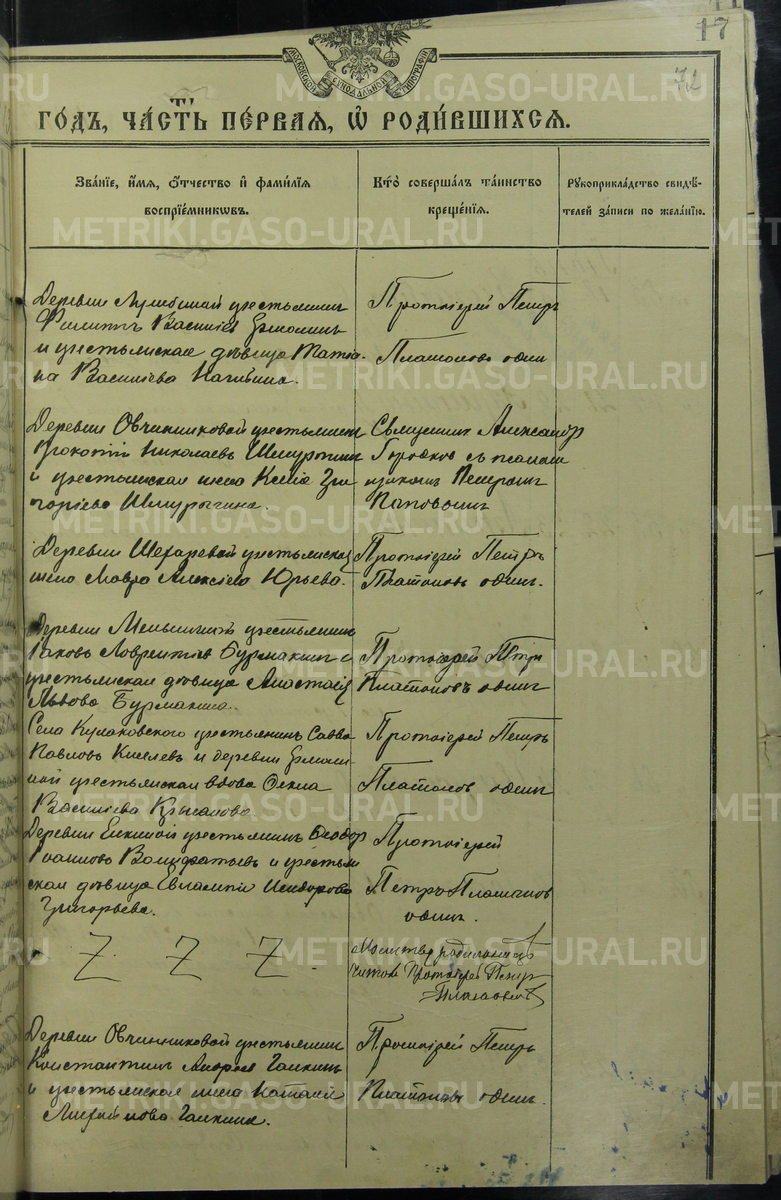 17
72
МОСКОВСКОЙ СѴНОДАЛЬНОЙ ТИПОГРАФІИ
METRIKI.GASO-URAL.RU
ГОДЪ, ЧАСТЬ ПЕРВАЯ, Ѡ РОДИВШИХСЯ.
Званіе, имя, отчество и фамилія воспріемниковъ.
Кто совершалъ таинство крещенія.
Рукоприкладство свидѣтелей записи по желанію.
Деревни крестьянинъ
Филиппъ Васильевъ Ермолинъ
и крестьянская дѣвица Татіа-
на Васильева Нагибина.
Протоіерей Петръ
Платоновъ одинъ
Деревни Овчинниковой крестьянинъ
Прокопій Николаевъ Шмурыгинъ
и крестьянская жена Ксенія Гри-
горіева Шмурыгина.
Священникъ Александръ
Городковъ съ псалом-
щикомъ Петромъ
Поповымъ
Деревни крестьянская
жена Мавра Алексіева Юрьева.
Протоіерей Петръ
Платоновъ одинъ.
Деревни крестьянинъ
Іаковъ Лаврентіевъ Бурмакинъ и
крестьянская дѣвица Анастасія
Львова Бурмакина.
Протоіерей Петръ
Платоновъ одинъ
Села Кулаковского крестьянинъ Савва
Павловъ Киселевъ и деревни
крестьянская вдова Ѳекла
Васильева Крысанова
Протоіерей Петръ
Платоновъ одинъ
Деревни Екиной крестьянинъ Ѳеодоръ
Іоанновъ и крестьян-
ская дѣвица Евлампія Исидорова
Григорьева.
Протоіерей
Петръ Платоновъ
одинъ.
Z Z Z
Молитвы родильницѣ
читалъ Протоіерей Петръ
Платоновъ
Деревни Овчинниковой крестьянинъ
Константинъ Андреевъ Галкинъ
и крестьянская жена
Галкина.
Протоіерей Петръ
Платоновъ одинъ.